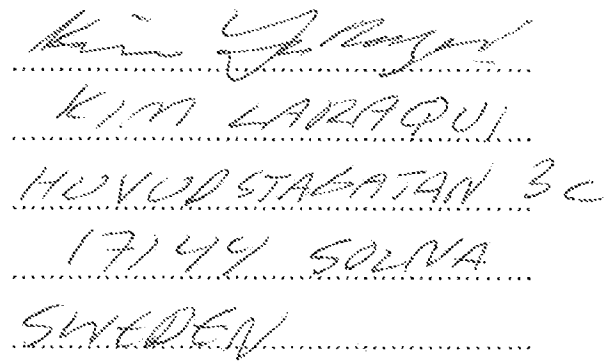 Kim
KIM LARAQUI
HUVUDSTAGATAN 3C
17144 SOLNA
SWEDEN